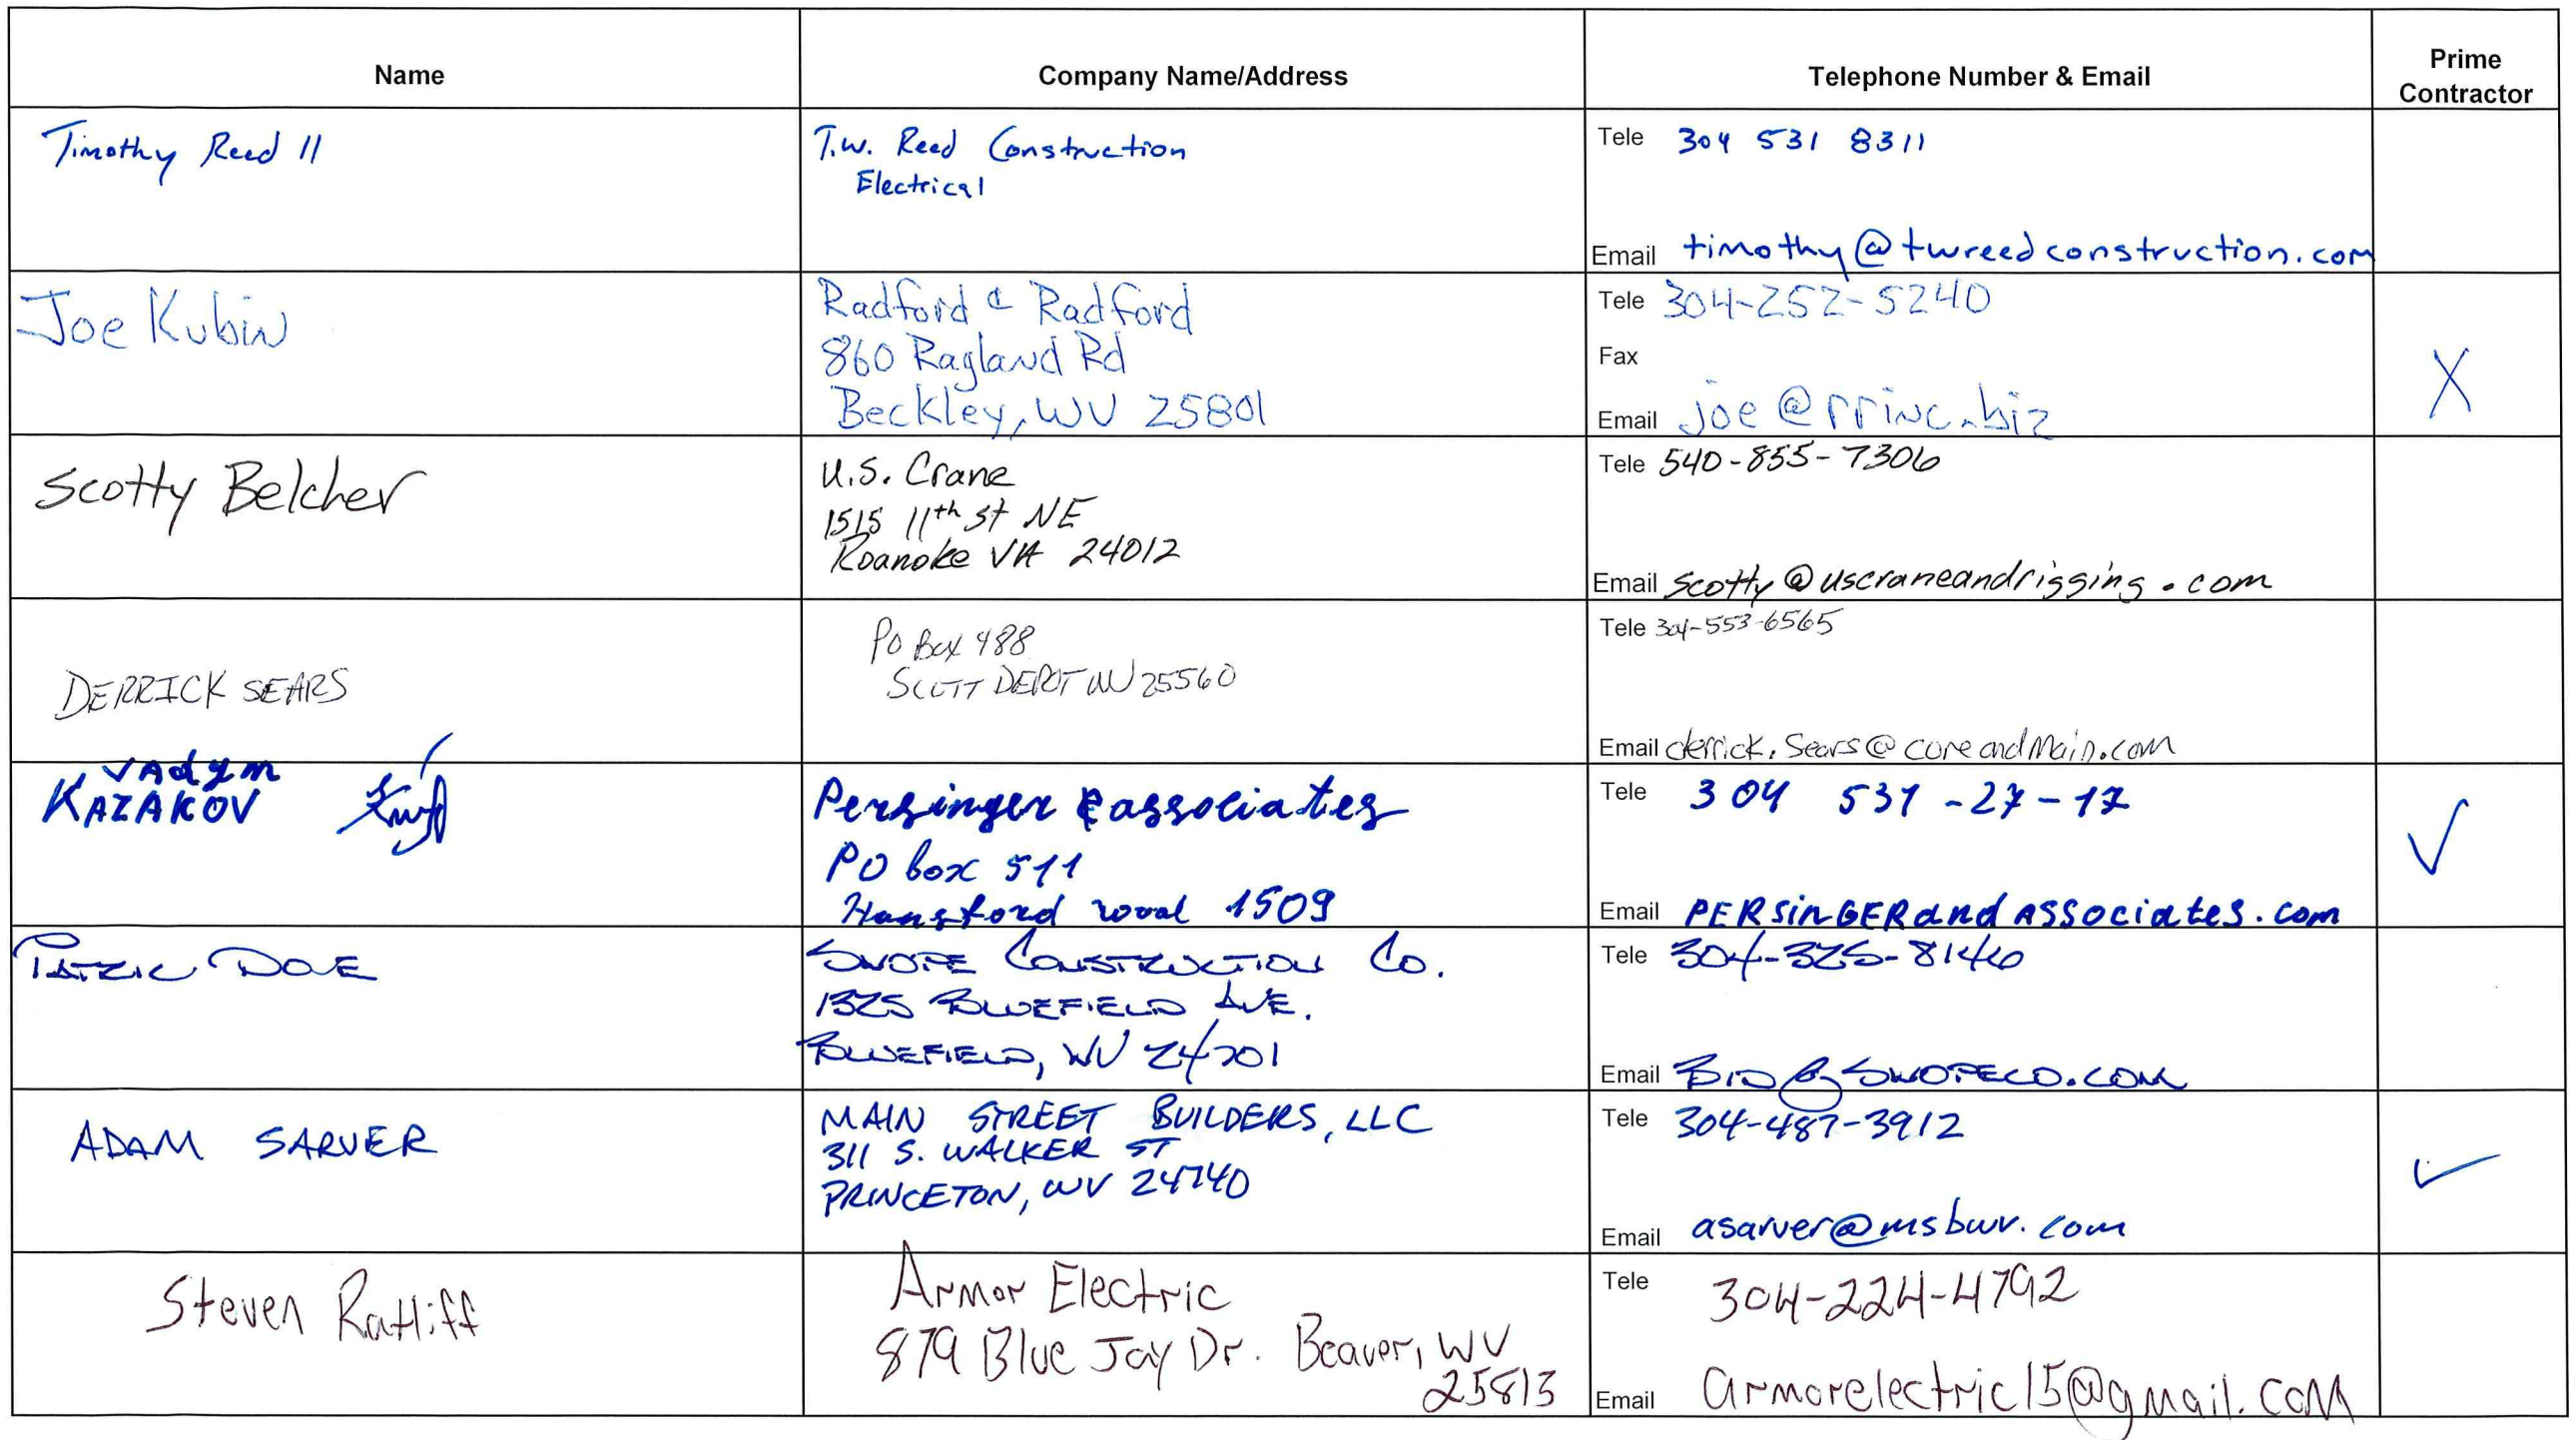 Name
Company Name/Address
Telephone Number & Email
Prime Contractor
Timothy Reed II
T.W. Reed Construction
Electrical
Tele 304 531 8311
Email timothy@twreedconstruction.com
Joe Kubin
Radford & Radford
860 Ragland Rd
Beckley, WV 25801
Tele 304-252-5240
Fax
Email joe@rrinc.biz
X
Scotty Belcher
U.S. Crane
1515 11th St NE
Roanoke VA 24012
Tele 540-855-7306
Email scotty@uscraneandrigging.com
DERRICK SEARS
PO Box 488
SCOTT DEPOT WV 25560
Tele 304-553-6565
Email derrick.sears@coreandmain.com
Vadym
KAZAKOV
Persinger & associates
PO box 511
Hansford road 1509
Tele 304 531-27-17
Email PERSinGERandASSociates.com
✓
PATRIC DOVE
SWOPE CONSTRUCTION CO.
1325 BLUEFIELD AVE.
BLUEFIELD, WV 24701
Tele 304-325-8146
Email BID@SWOPECO.COM
ADAM SARVER
MAIN STREET BUILDERS, LLC
311 S. WALKER ST
PRINCETON, WV 24740
Tele 304-487-3912
Email asarver@msbwv.com
✓
Steven Ratliff
Armor Electric
879 Blue Jay Dr. Beaver, WV
25813
Tele 304-224-4792
Email armorelectric15@gmail.com